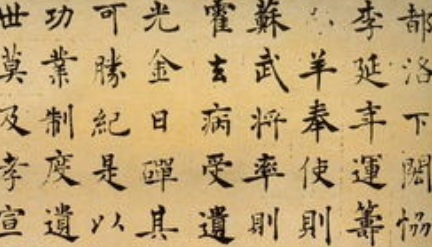 都洛下閎協
李延年運籌
羊奉使則
蘇武將率則
霍去病受遺
光金日磾其
可勝紀是以
功業制度遺
世莫及孝宣